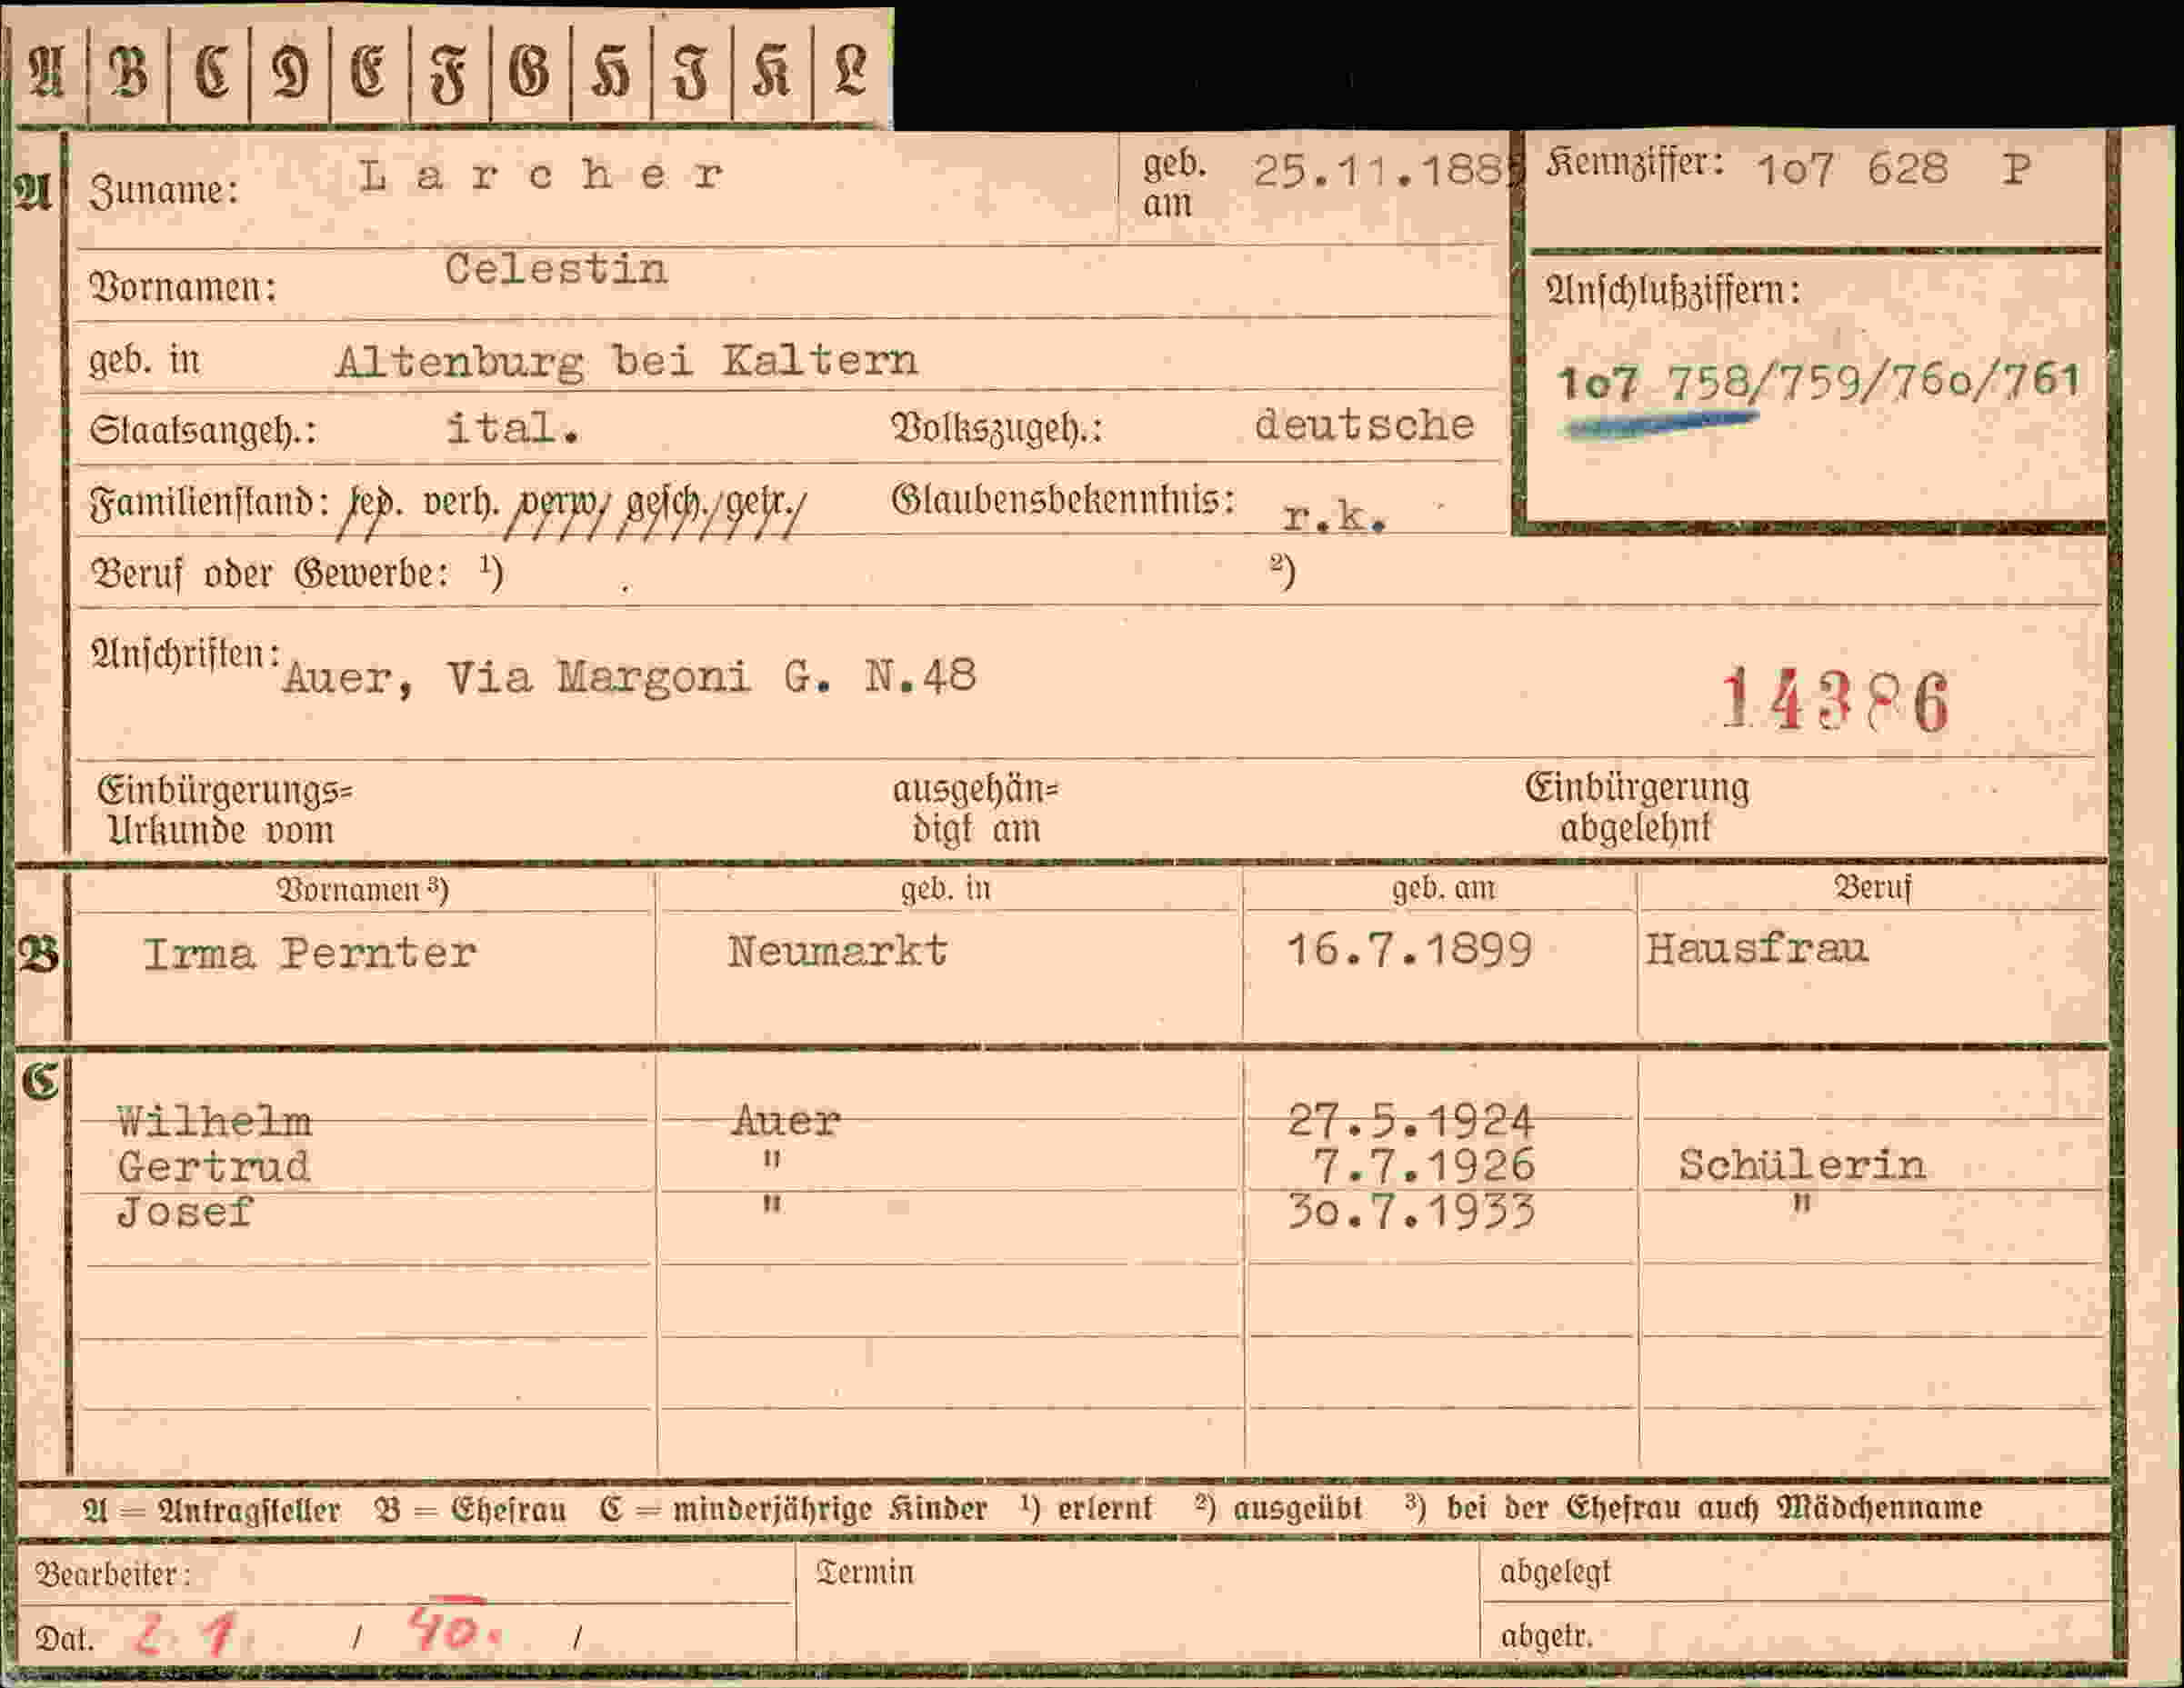 A B C D E F G H I K L
A Zuname: Larcher geb. am 25.11.188 Kennziffer: 1o7 628 P
Vornamen: Celestin
Anschlußziffern:
geb. in Altenburg bei Kaltern
1o7 758/759/76o/761
Staatsangeh.: ital. Volkszugeh.: deutsche
Familienstand: led. verh. verw. gesch. getr. Glaubensbekenntnis: r.k.
Beruf oder Gewerbe: ¹) ²)
Anschriften: Auer, Via Margoni G. N.48
14386
Einbürgerungs= ausgehän= Einbürgerung
Urkunde vom digt am abgelehnt
Vornamen ³) geb. in geb. am Beruf
B Irma Pernter Neumarkt 16.7.1899 Hausfrau
C
Wilhelm Auer 27.5.1924
Gertrud " 7.7.1926 Schülerin
Josef " 3o.7.1933 "
A = Antragsteller B = Ehefrau C = minderjährige Kinder ¹) erlernt ²) ausgeübt ³) bei der Ehefrau auch Mädchenname
Bearbeiter: Termin abgelegt
Dat. 2 1 / 40. / abgetr.